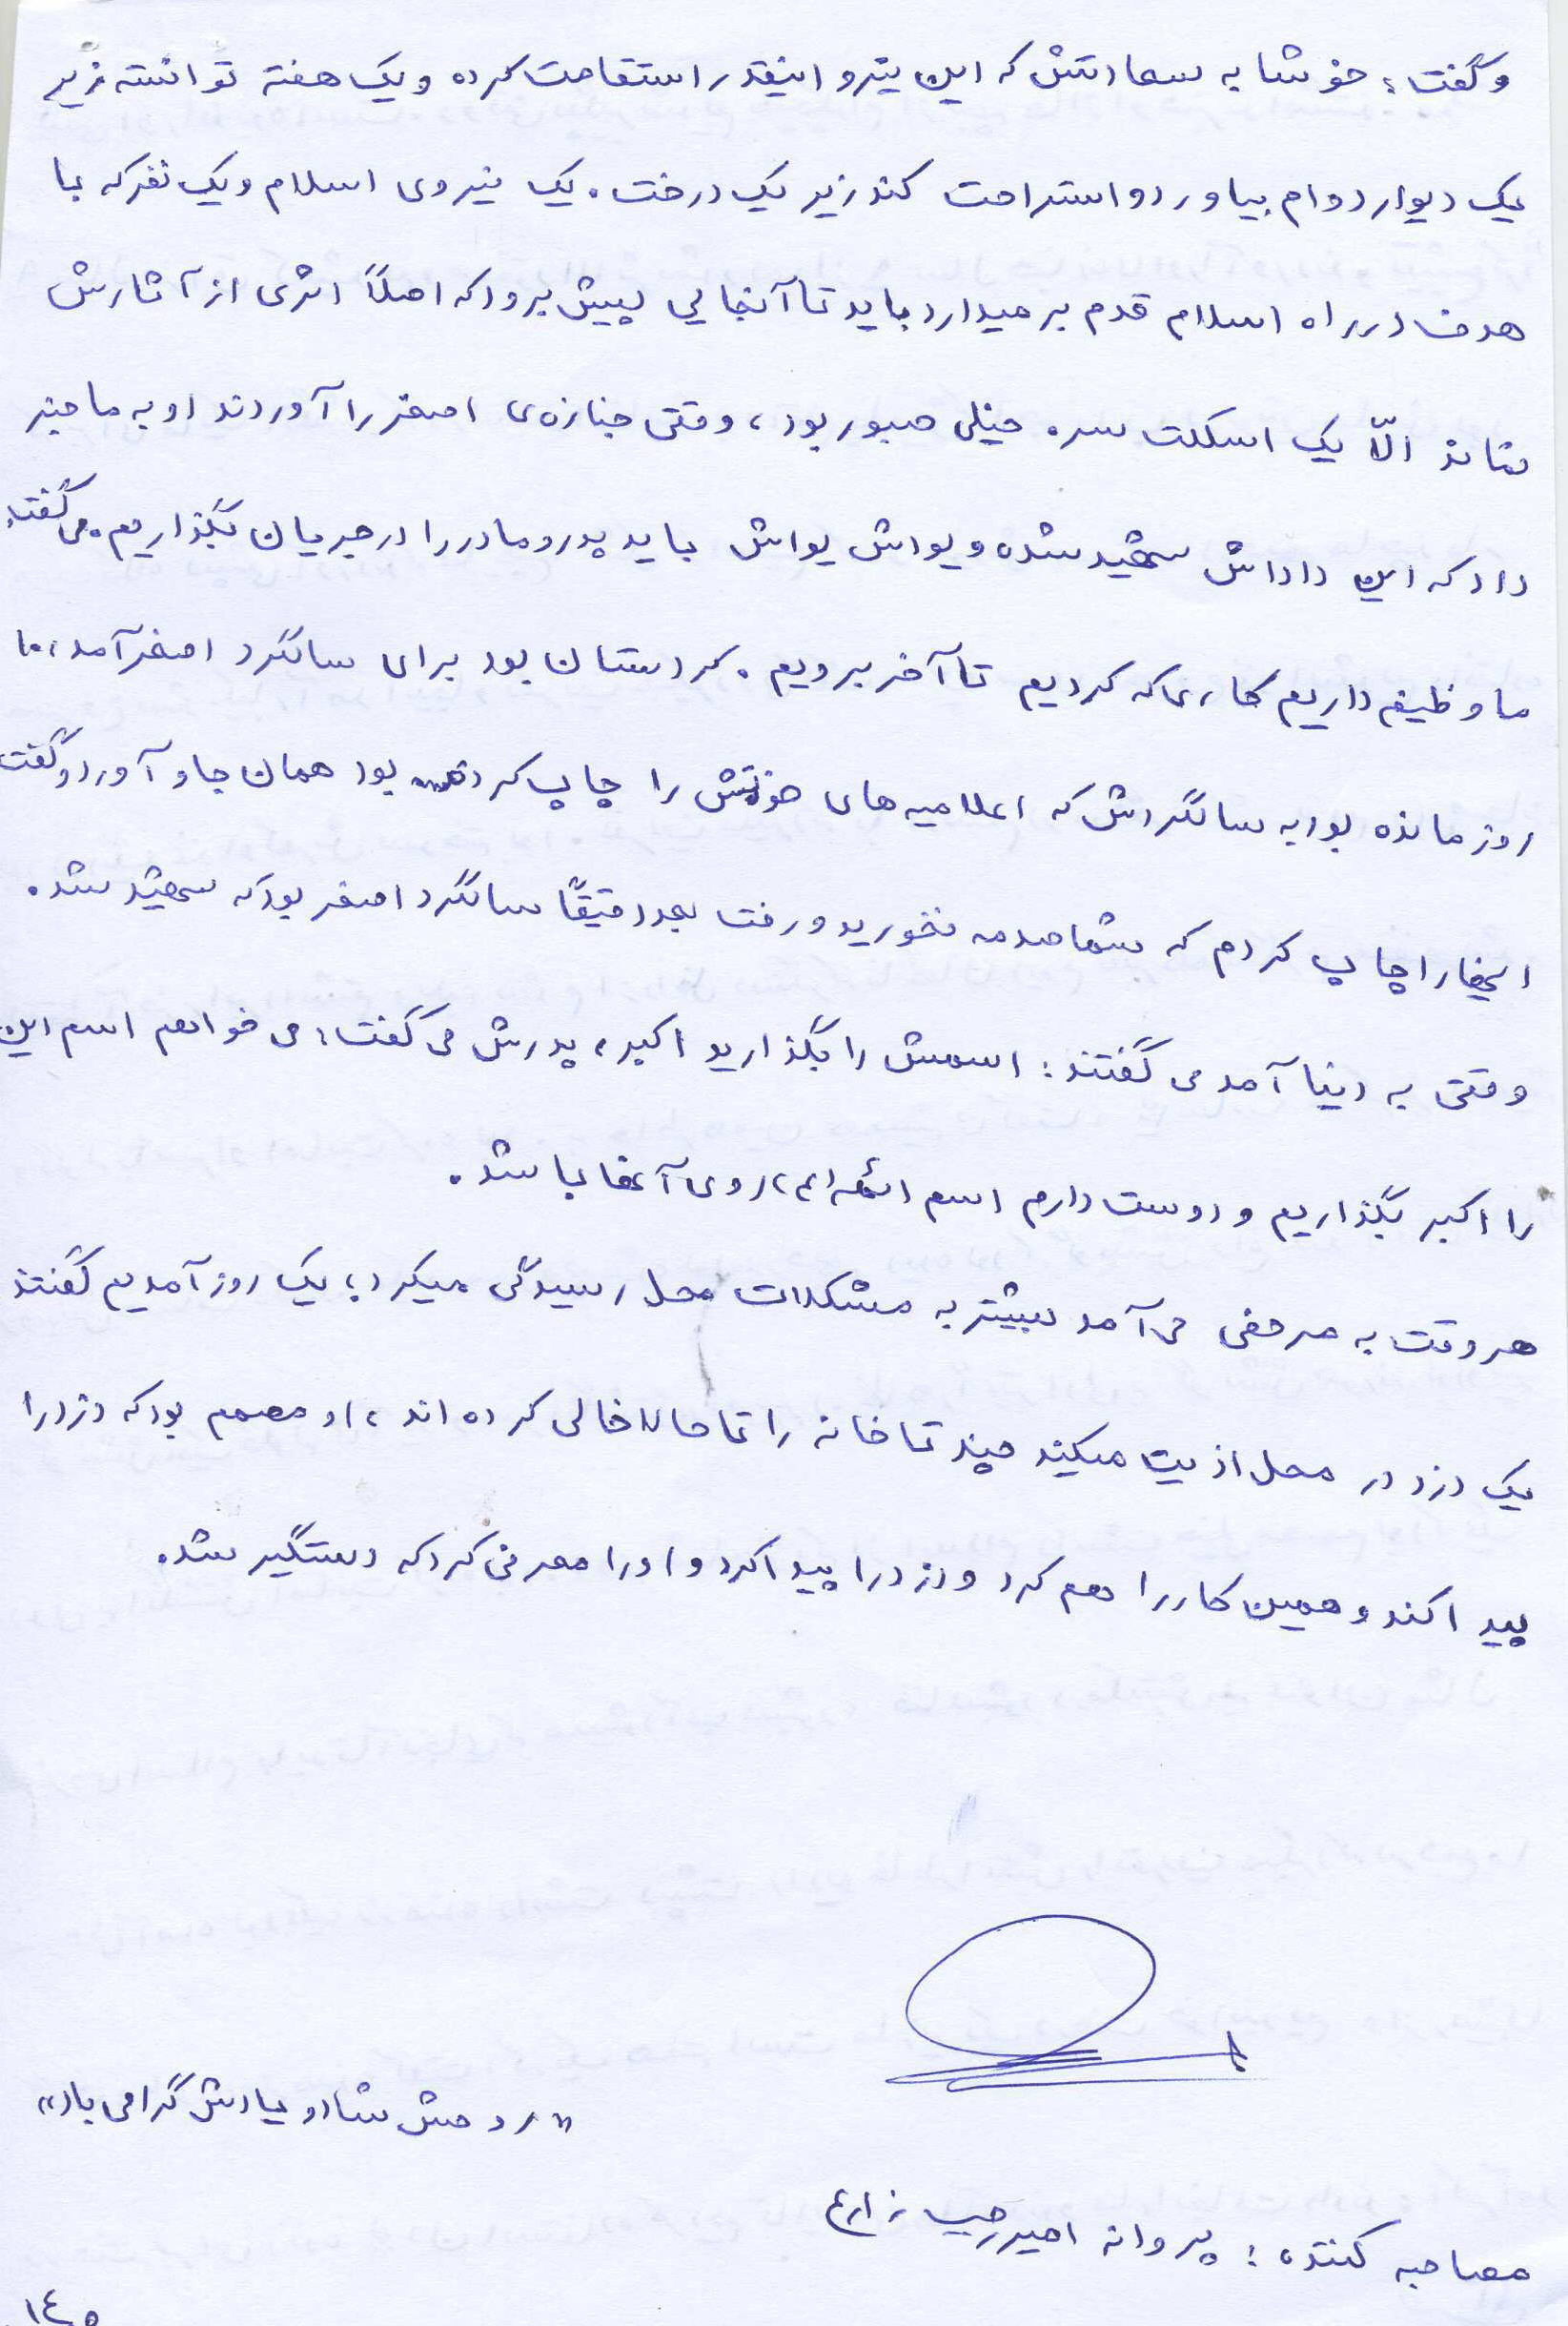 و گفت: خوشا به سعادتش که این نیرو اینقدر استقامت کرده و یک هفته توانسته زیر
یک دیوار دوام بیاورد و استراحت کند زیر یک درخت. یک نیروی اسلام و یک نفر که با
هدف در راه اسلام قدم برمیدارد باید تا آنجایی پیش برود که اصلاً اثری از آثارش
نماند الّا یک اسکلت سر. خیلی صبور بود، وقتی جنازه‌ی اصغر را آوردند او به ما خبر
داد که این داداش شهید شده و یواش یواش باید پدر و مادر را در جریان بگذاریم. می گفت:
ما وظیفه داریم کاری که کردیم تا آخر برویم. کردستان بود برای سالگرد اصغر آمد، ۱۰
روز مانده بود به سالگردش که اعلامیه های خودش را چاپ کرده بود همان جا و آورد و گفت
اینها را چاپ کردم که شما صدمه نخورید و رفت بعد دقیقاً سالگرد اصغر بود که شهید شد.
وقتی به دنیا آمد می گفتند: اسمش را بگذارید اکبر، پدرش می گفت: می خواهم اسم این
را اکبر بگذاریم و دوست دارم اسم ائمه (ع) روی آنها باشد.
هر وقت به مرخصی می آمد بیشتر به مشکلات محل رسیدگی میکرد؛ یک روز آمدیم گفتند
یک دزد در محل اذیت میکند چند تا خانه را تا حالا خالی کرده اند، او مصمم بود که دزد را
پیدا کند و همین کار را هم کرد و دزد را پیدا کرد و او را معرفی کرد که دستگیر شد.
«روحش شاد و یادش گرامی باد»
مصاحبه کننده: پروانه امیررجب زارع